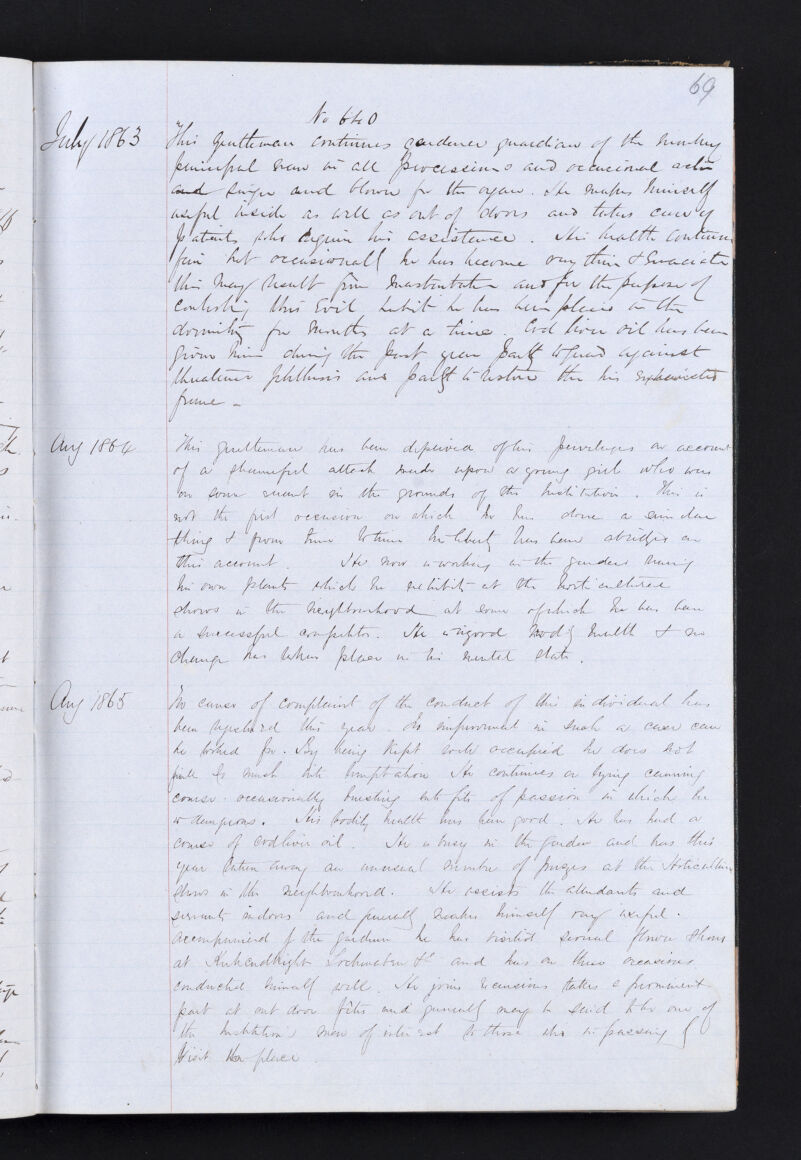 69
No 640
July 1863 This gentleman continues gardener guardian of the monkey
principal man in all processions and occasional actor
and singer and blower for the organ. He makes himself
useful inside as well as out of doors and takes care of
patients who require his assistance. His health continues
fair but occasionally he has become very thin & emaciated
this may result from masturbation and for the purpose of
controlling this evil habit he has been placed in the
dormitory for months at a time. Cod liver oil has been
given him during the past year partly to guard against
threatened phthisis and partly to restore the his exhausted
frame –
Aug 1864 This gentleman has been deprived of his privileges on account
of a shameful attack made upon a young girl who was
on some errand in the grounds of the Institution. This is
not the first occasion on which he has done a similar
thing & from time to time his liberty has been abridged on
this account. He now is working in the gardens having
his own plants which he exhibits at the horticultural
shows in the neighbourhood at some of which he has been
a successful competitor. He is in good bodily health & no
change has taken place in his mental state.
Aug 1865 No cause of complaint of the conduct of this individual has
been registered this year. No improvement in such a case can
be looked for. By being kept well occupied he does not
fall so much into temptation. He continues a lying cunning
course occasionally bursting into fits of passion in which he
is dangerous. His bodily health has been good. He has had a
course of cod liver oil. He is busy in the garden and has this
year taken away an unusual number of prizes at the Horticultural
Shows in the neighbourhood. He assists the attendants and
servants indoors and generally makes himself very useful.
Accompanied by the gardener he has visited several flower shows
at Kirkcudbright Lochmaben &c and has on these occasions
conducted himself well. He joins excursions takes a prominent
part at out door fêtes and generally may be said to be one of
the Institution's men of interest to those who in passing
visit the place.